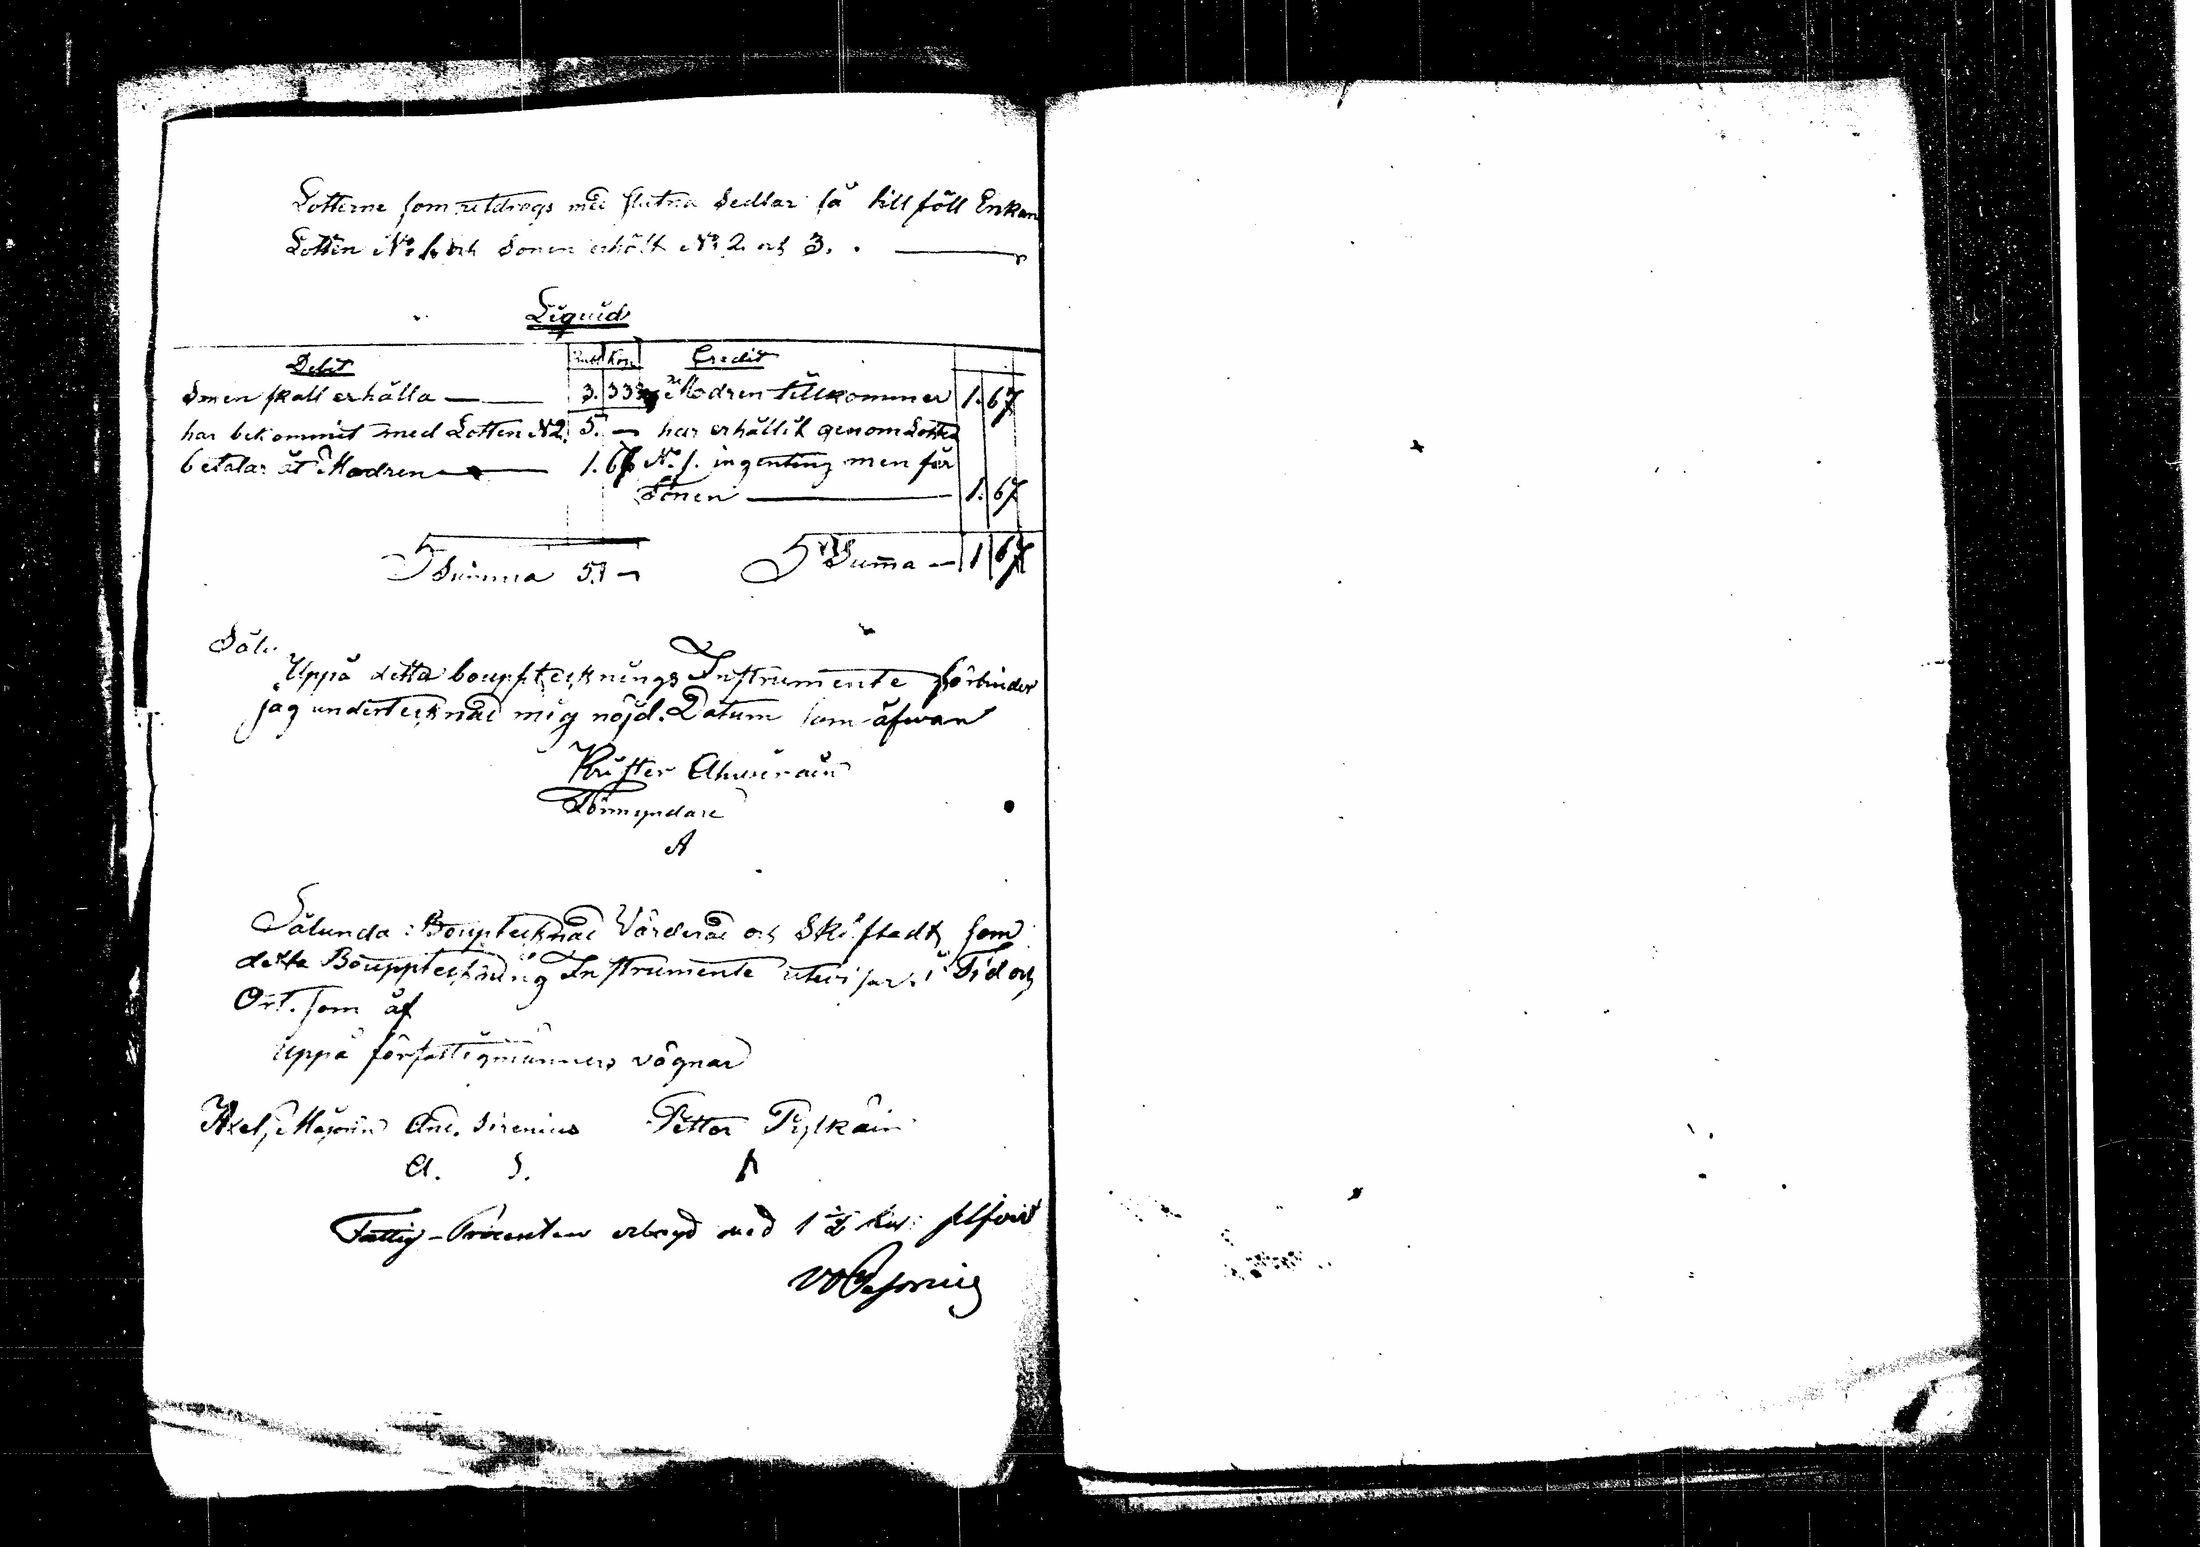 Lotterne som utdrogs med slutna Sedlar så till föll Enkan
Lotten No 1. och Sonen erhölt No 2 och 3.
Liquid
Debet Rub Kop Credit
Sonen skall erhålla 3. 33 Modren tillkommer 1. 67
har bekommit med Lotten N2. 5. — har erhållit genom Lotten
betalar åt Modren 1. 67 No 1. ingenting men får
Sonen 1. 67
Summa 5. — Summa — 1 67
Sålu
Uppå detta boupptecknings Instrumente förbinder
jag undertecknad mig nöjd. Datum som åfwan
Krister Ahwenain
Förmyndare
A
Sålunda Boupptecknad Värderad och Skiftadt, som
detta Bouppteckning Instrumente utvisar. i Tid och
Ort. som åf
Uppå författigmänners vägnar
Axel And. Sirenius Petter Pylkäin
A. S.
Fattig-Procenten erlagd med 1 1/2 kop silfver